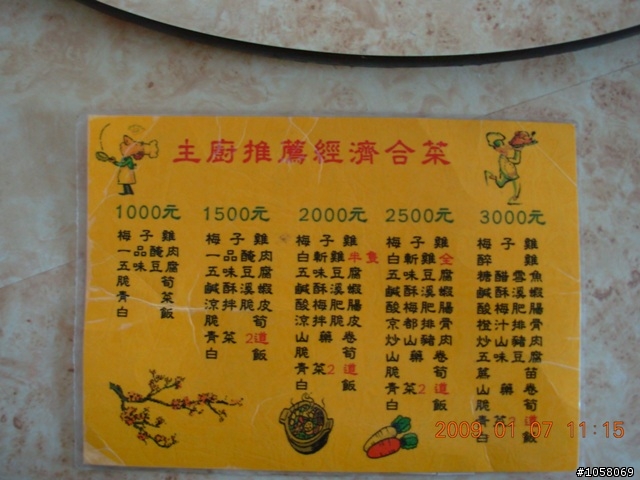 主廚推薦經濟合菜
1000元
梅子雞
一品醃肉
五味豆腐
脆筍
青菜
白飯
1500元
梅子雞
一品醃肉
五味豆腐
鹹酥溪蝦
涼拌脆皮
脆筍
青菜2道
白飯
2000元
梅子雞
白斬雞半隻
五味豆腐
鹹酥溪蝦
酸梅肥腸
涼拌脆皮
山藥卷
脆筍
青菜2道
白飯
2500元
梅子雞
白斬雞全
五味豆腐
鹹酥溪蝦
酸梅肥腸
京都排骨
炒山豬肉
山藥卷
脆筍
青菜2道
白飯
3000元
梅子雞
醉雞
糖醋雪魚
鹹酥溪蝦
酸梅肥腸
橙汁排骨
炒山豬肉
五味豆腐
苗
山藥卷
脆筍
青菜2道
白飯
2009 01 07 11:15
#1058069